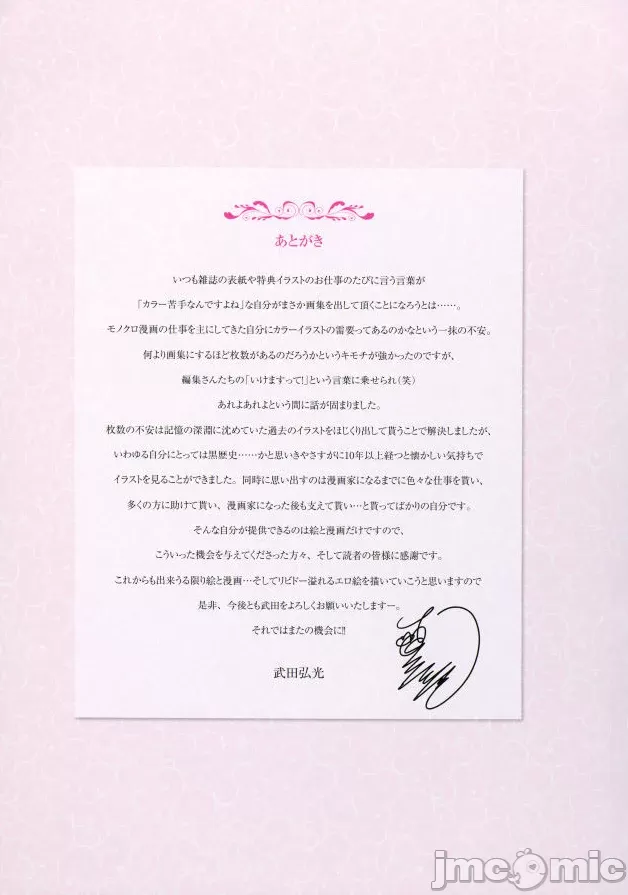 あとがき
いつも雑誌の表紙や特典イラストのお仕事のたびに言う言葉が
「カラー苦手なんですよね」な自分がまさか画集を出して頂くことになろうとは……。
モノクロ漫画の仕事を主にしてきた自分にカラーイラストの需要ってあるのかなという一抹の不安。
何より画集にするほど枚数があるのだろうかというキモチが強かったのですが、
編集さんたちの「いけますって!」という言葉に乗せられ(笑)
あれよあれよという間に話が固まりました。
枚数の不安は記憶の深淵に沈めていた過去のイラストをほじくり出して貰うことで解決しましたが、
いわゆる自分にとっては黒歴史……かと思いきやさすがに10年以上経つと懐かしい気持ちで
イラストを見ることができました。同時に思い出すのは漫画家になるまでに色々な仕事を貰い、
多くの方に助けて貰い、漫画家になった後も支えて貰い…と貰ってばかりの自分です。
そんな自分が提供できるのは絵と漫画だけですので、
こういった機会を与えてくださった方々、そして読者の皆様に感謝です。
これからも出来うる限り絵と漫画…そしてリビドー溢れるエロ絵を描いていこうと思いますので
是非、今後とも武田をよろしくお願いいたしますー。
それではまたの機会に!!
武田弘光
jmcomic